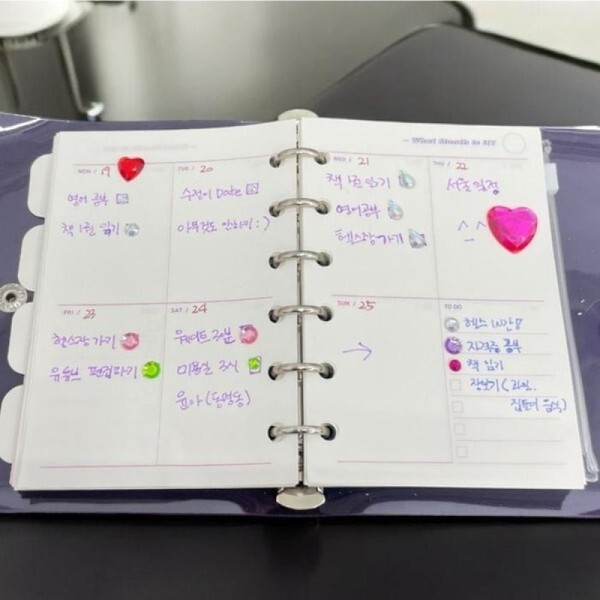 MON / 19
영어 공부
책 1권 읽기
TUE / 20
수정이 Date
아무것도 안하기 : )
- What Month is It?
WED / 21
책 1권 읽기
영어공부
헬스장 가기
THU / 22
서울 일정
^_^
FRI / 23
헬스장 가기
유튜브 편집하기
SAT / 24
웨이트 2분
미용실 3시
윤아 (동명동)
SUN / 25
→
TO DO
헬스 1시간
자격증 공부
책 읽기
장보기 (과일,
집들이 음식)